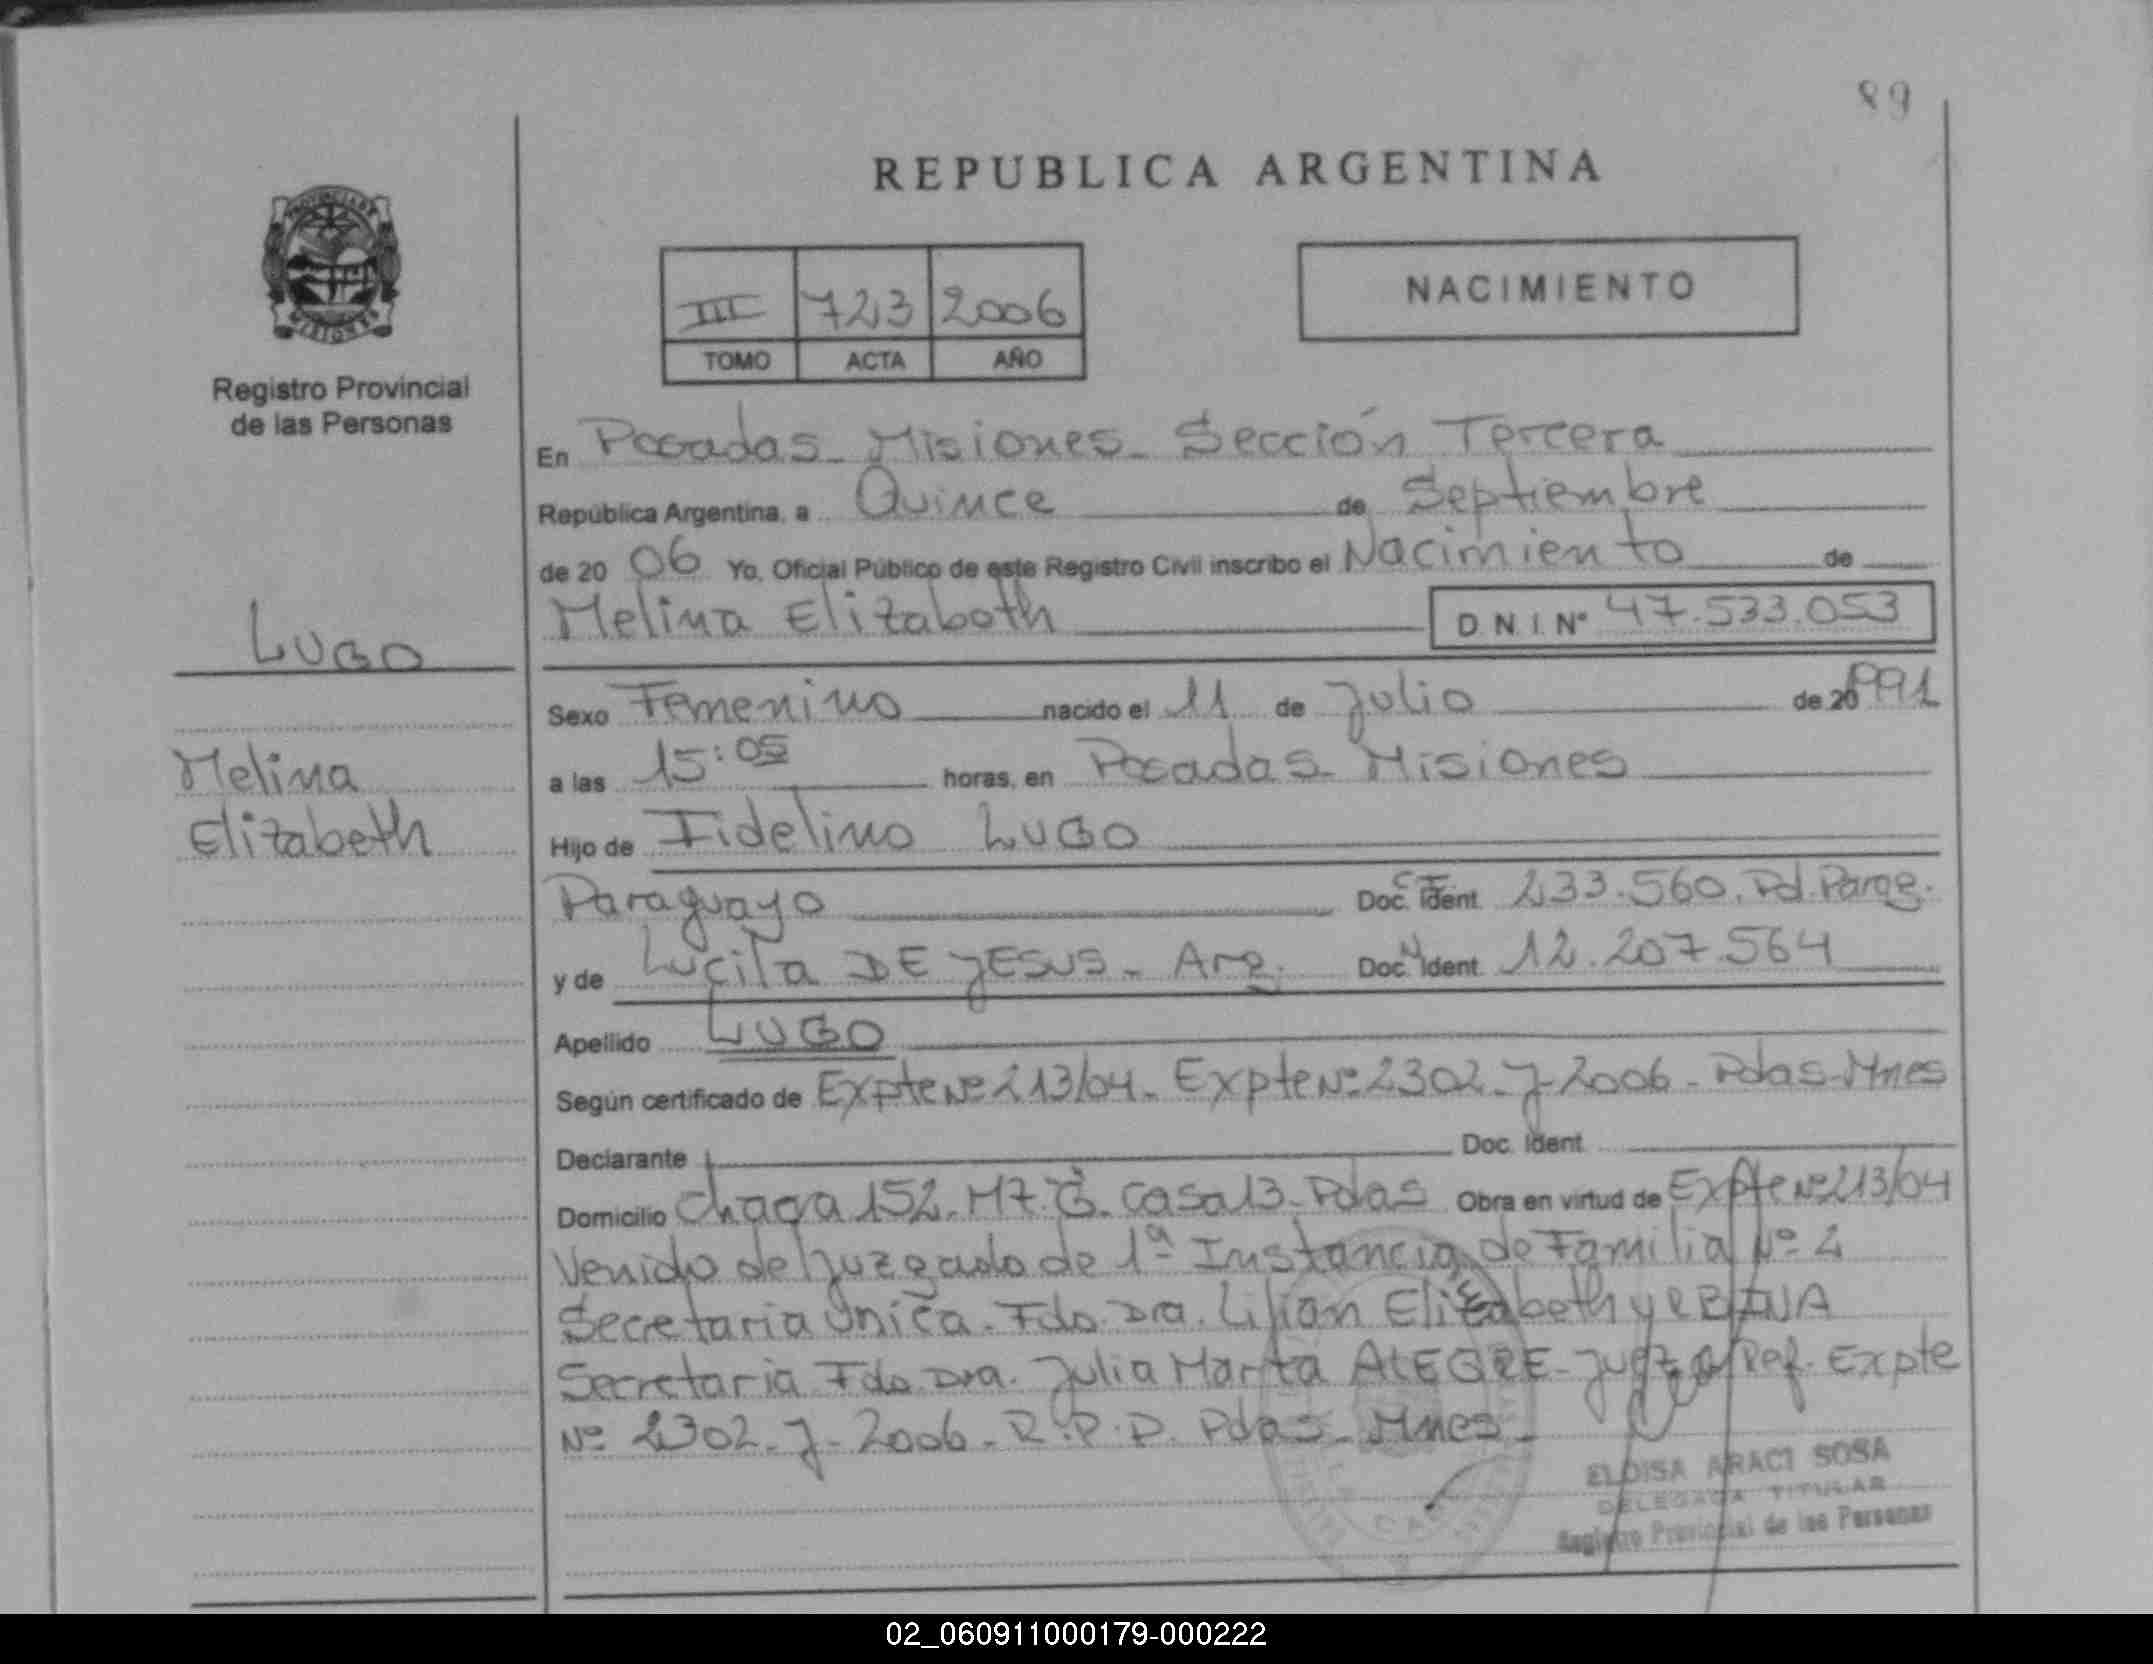 89
REPUBLICA ARGENTINA
PROVINCIA DE
MISIONES
Registro Provincial
de las Personas
III 723 2006
TOMO ACTA AÑO
NACIMIENTO
En Posadas - Misiones - Sección Tercera
República Argentina, a Quince de Septiembre
de 20 06 Yo, Oficial Público de este Registro Civil inscribo el Nacimiento de
Melina Elizabeth D.N.I. Nº 47.533.053
LUGO
Melina
Elizabeth
Sexo Femenino nacido el 11 de Julio de 20 1991
a las 15:05 horas, en Posadas - Misiones
Hijo de Fidelino LUGO
Paraguayo Doc. Ident. C.I. 233.560. Pol. Parag.
y de Lucila DE JESUS - Arg. Doc. Ident. 12.207.564
Apellido LUGO
Según certificado de Expte Nº 213/04 - Expte Nº 2302 - J - 2006 - Pdas - Mnes
Declarante Doc. Ident.
Domicilio Chaca 152 - M7. C. Casa 13 - Pdas Obra en virtud de Expte Nº 213/04
Venido del Juzgado de 1ª Instancia de Familia Nº 2
Secretaria Única - Fdo. Dra. Lilian Elizabeth
Secretaria Fdo Dra. Julia Marta ALEGRE - Juez Ref. Expte
Nº 2302 - J - 2006 - R.P.P. Pdas - Mnes -
ELOISA ARACI SOSA
DELEGADA TITULAR
Registro Provincial de las Personas
02_060911000179-000222